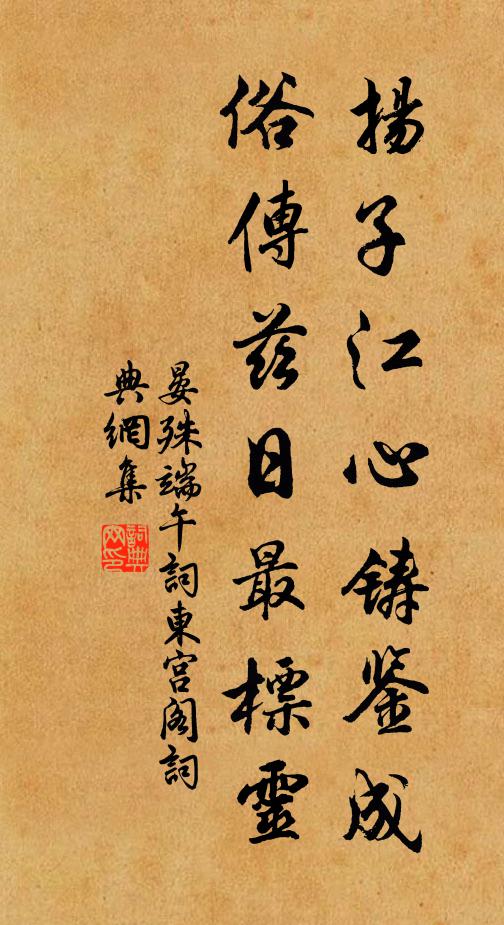 揚子江心鋳鉴成
俗傳茲日最標靈
晏殊端午詞東宫阁詞
典網集
詞典
网印